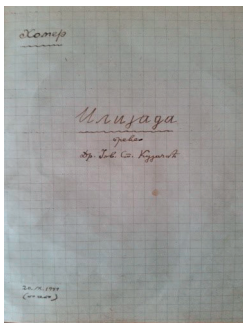 Хомер
Илијада
превео
Др. Јов. Ст. Кудриић